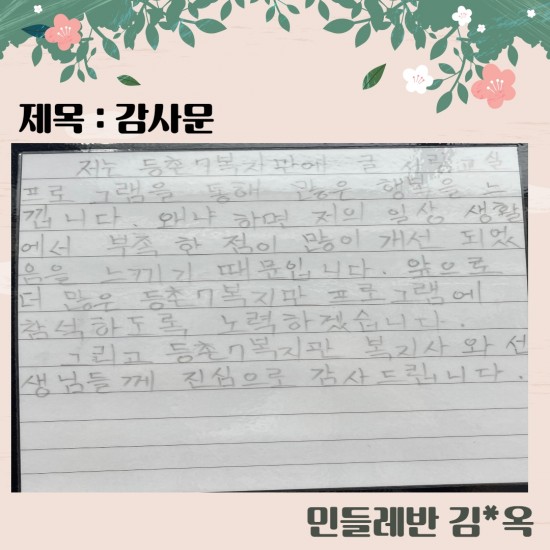 제목 : 감사문
저는 등촌7복지관에 글 사랑교실
프로그램을 통해 많은 행복을 느
낍니다. 왜냐 하면 저의 일상 생활
에서 부족한 점이 많이 개선 되었
음을 느끼기 때문입니다. 앞으로
더 많은 등촌7복지관 프로그램에
참석하도록 노력하겠습니다.
그리고 등촌7복지관 복지사와 선
생님들께 진심으로 감사드립니다.
민들레반 김*옥